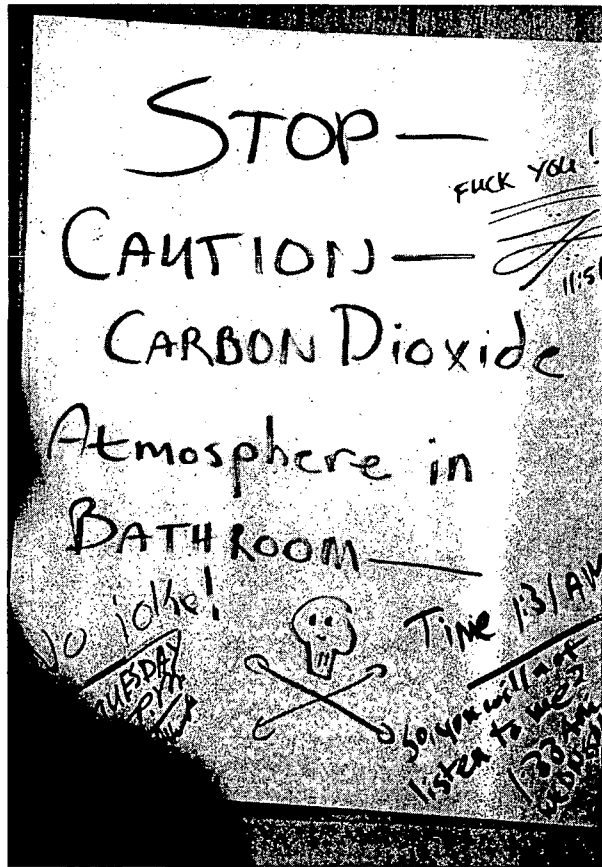 STOP —
FUCK YOU!
CAUTION —
11:51
CARBON Dioxide
Atmosphere in
BATHROOM
No joke!
TIME 1:31 AM
TUESDAY
So, you will not
listen to me?
1:33 AM